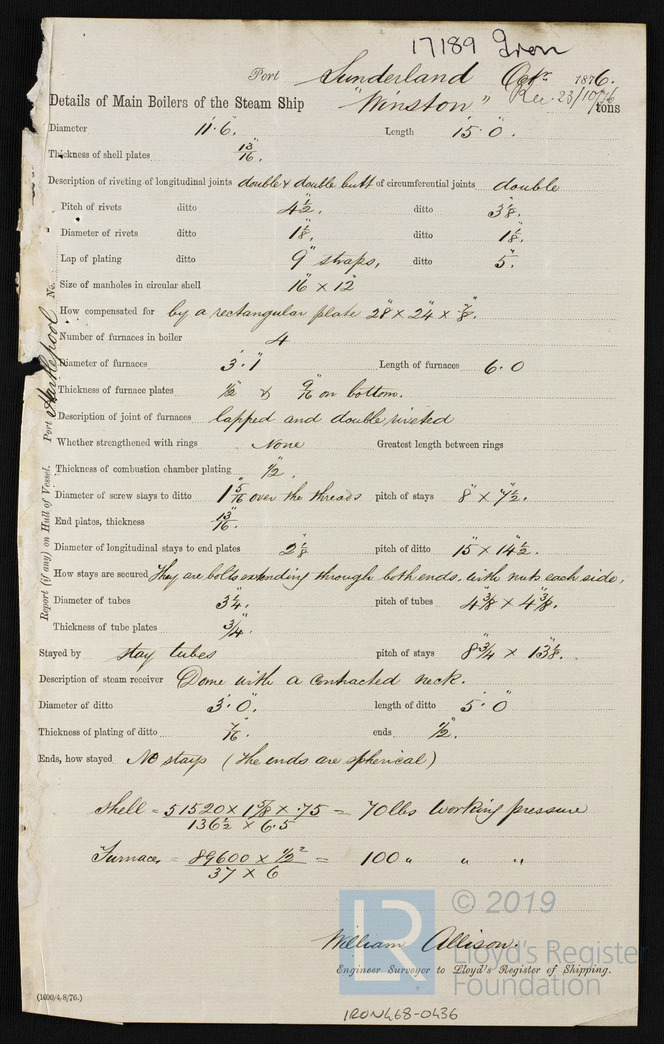 17189 Iron
Port Sunderland Octr. 1876.
Rec. 23/10/76
Details of Main Boilers of the Steam Ship "Winston" tons
Diameter 11'.6". Length 15'.0".
Thickness of shell plates 13/16".
Description of riveting of longitudinal joints double & double butt of circumferential joints double
Pitch of rivets ditto 4½". ditto 3⅛".
Diameter of rivets ditto 1⅛". ditto 1⅛".
Lap of plating ditto 9" straps, ditto 5".
Size of manholes in circular shell 16" x 12"
How compensated for by a rectangular plate 28" x 24" x ⅞".
Number of furnaces in boiler 4
Diameter of furnaces 3'.1" Length of furnaces 6'.0
Thickness of furnace plates ½" & 9/16" on bottom.
Description of joint of furnaces lapped and double riveted
Whether strengthened with rings None Greatest length between rings
Thickness of combustion chamber plating ½".
Diameter of screw stays to ditto 1 5/16" over the threads pitch of stays 8" x 7½".
End plates, thickness 13/16".
Diameter of longitudinal stays to end plates 2⅛" pitch of ditto 15" x 14½".
How stays are secured They are bolts extending through both ends, with nuts each side.
Diameter of tubes 3¼". pitch of tubes 4⅜" x 4⅜".
Thickness of tube plates ¾".
Stayed by stay tubes pitch of stays 8¾" x 13⅛".
Description of steam receiver Dome with a contracted neck.
Diameter of ditto 3'.0". length of ditto 5'.0"
Thickness of plating of ditto 7/16". ends ½".
Ends, how stayed No stays (the ends are spherical)
Shell = 51520 x 1⅝ x .75 = 70 lbs working pressure
136½ x 6.5
Furnace, = 89600 x ½² = 100 " " "
37 x 6
William Allison.
Engineer Surveyor to Lloyd's Register of Shipping.
(1000/4/8/76.)
IRON468-0436
Report (if any) on Hull of Vessel. Port Hartlepool No.
© 2019
LR
Lloyd's Register
Foundation